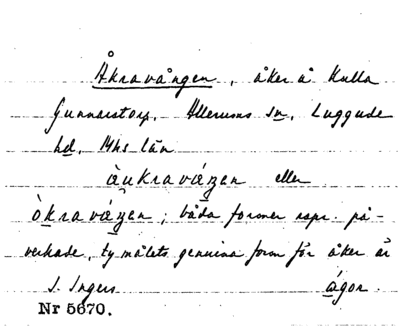 Åkravången, åker å Kulla
Gunnarstorp, Allerums sn, Luggude
hd, Mhs län
àukraváŋen eller
òkraváŋen; båda former repr. på-
verkade, ty målets genuina form för åker är
I. Ingers ágor.
Nr 5670.